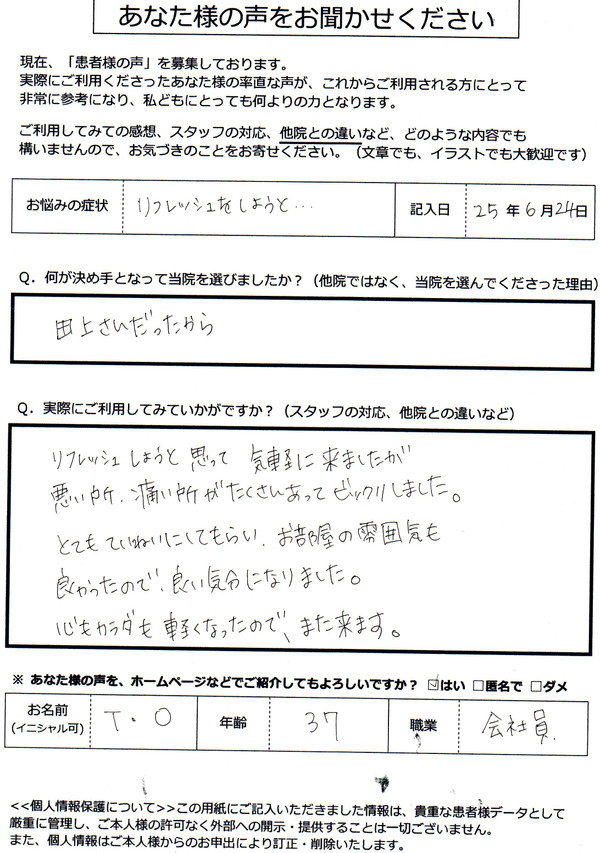 あなた様の声をお聞かせください
現在、「患者様の声」を募集しております。
実際にご利用くださったあなた様の率直な声が、これからご利用される方にとって
非常に参考になり、私どもにとっても何よりの力となります。
ご利用してみての感想、スタッフの対応、他院との違いなど、どのような内容でも
構いませんので、お気づきのことをお寄せください。（文章でも、イラストでも大歓迎です）
お悩みの症状 リフレッシュをしようと… 記入日 25年6月24日
Q．何が決め手となって当院を選びましたか？（他院ではなく、当院を選んでくださった理由）
田上さんだったから
Q．実際にご利用してみていかがですか？（スタッフの対応、他院との違いなど）
リフレッシュしようと思って 気軽に来ましたが
悪い所、痛い所がたくさんあってビックリしました。
とてもていねいにしてもらい、お部屋の雰囲気も
良かったので、良い気分になりました。
心もカラダも軽くなったので、また来ます。
※ あなた様の声を、ホームページなどでご紹介してもよろしいですか？ ☑はい □匿名で □ダメ
お名前 T．O 年齢 37 職業 会社員
(イニシャル可)
<<個人情報保護について>>この用紙にご記入いただきました情報は、貴重な患者様データとして
厳重に管理し、ご本人様の許可なく外部への開示・提供することは一切ございません。
また、個人情報はご本人様からのお申出により訂正・削除いたします。